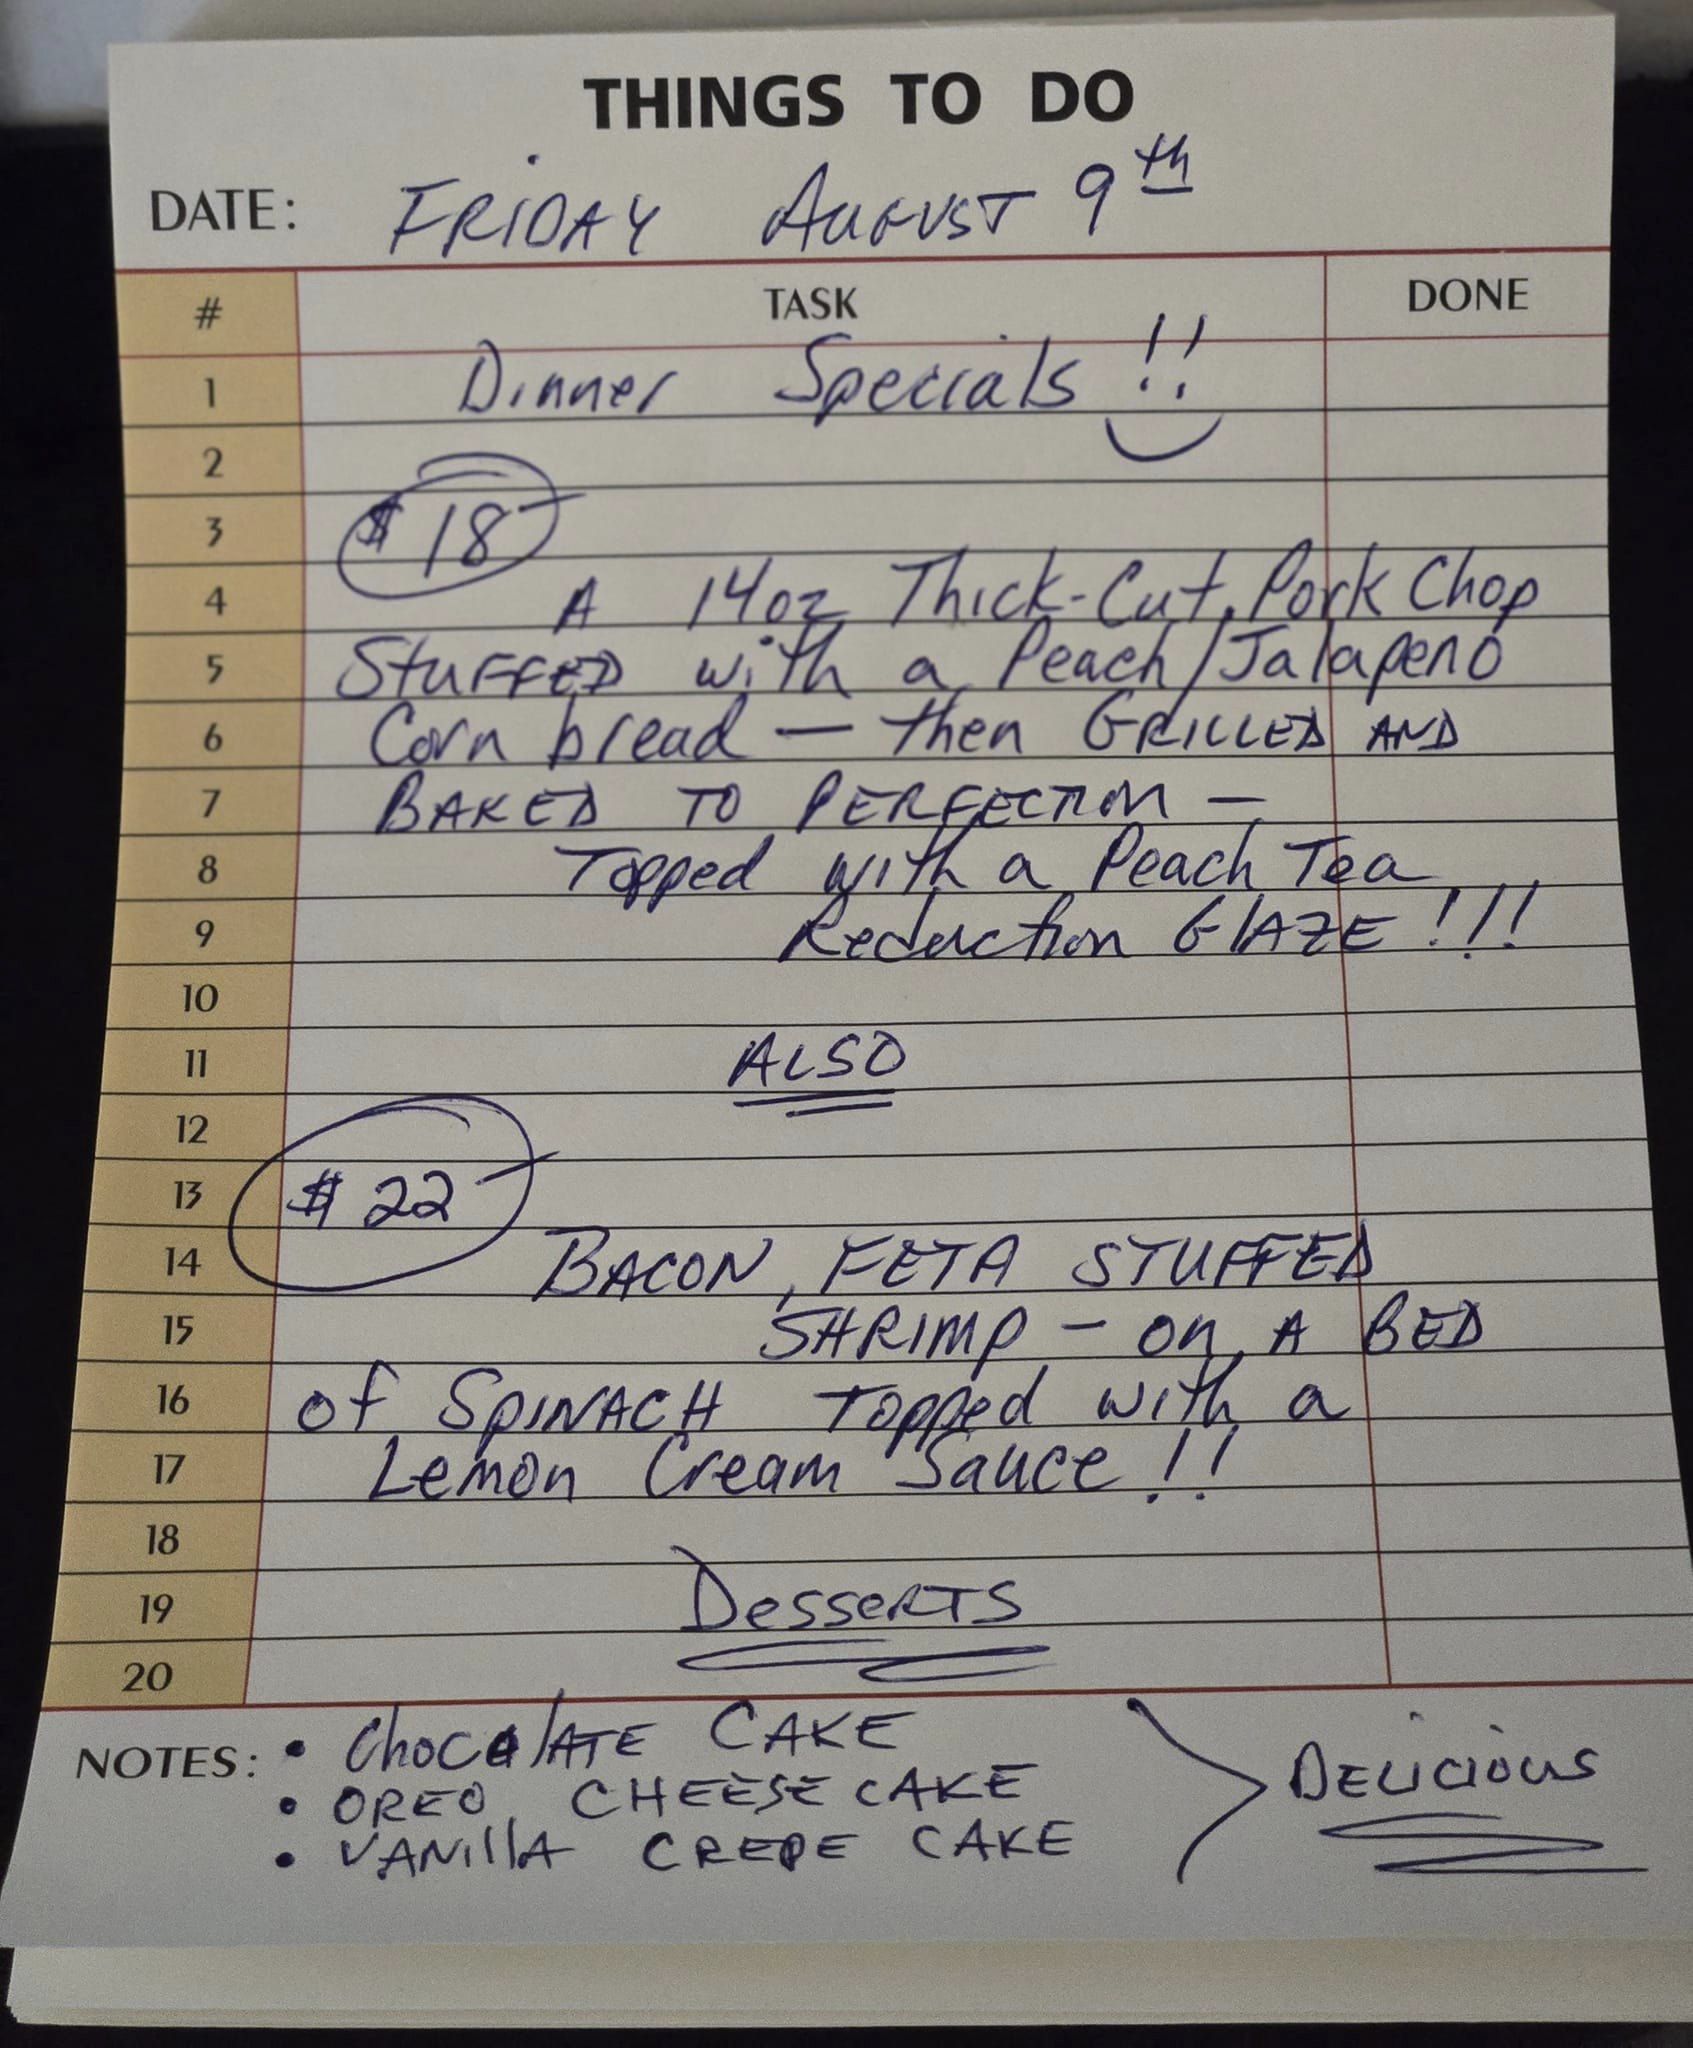 THINGS TO DO
DATE: FRIDAY AUGUST 9th
# TASK DONE
1 Dinner Specials !!
2
3 $18
4 A 14oz Thick-Cut Pork Chop
5 STUFFED with a Peach/Jalapeno
6 Corn bread — then GRILLED AND
7 BAKED TO PERFECTION —
8 Topped with a Peach Tea
9 Reduction GlAZE !!!
10
11 ALSO
12
13 $22
14 BACON, FETA STUFFED
15 SHRIMP - on A BED
16 of SPINACH Topped with a
17 Lemon Cream Sauce !!
18
19 DesserTS
20
NOTES: • ChocolATE CAKE
• OREO CHEESE CAKE
• VANillA CREPE CAKE
DELICIOUS